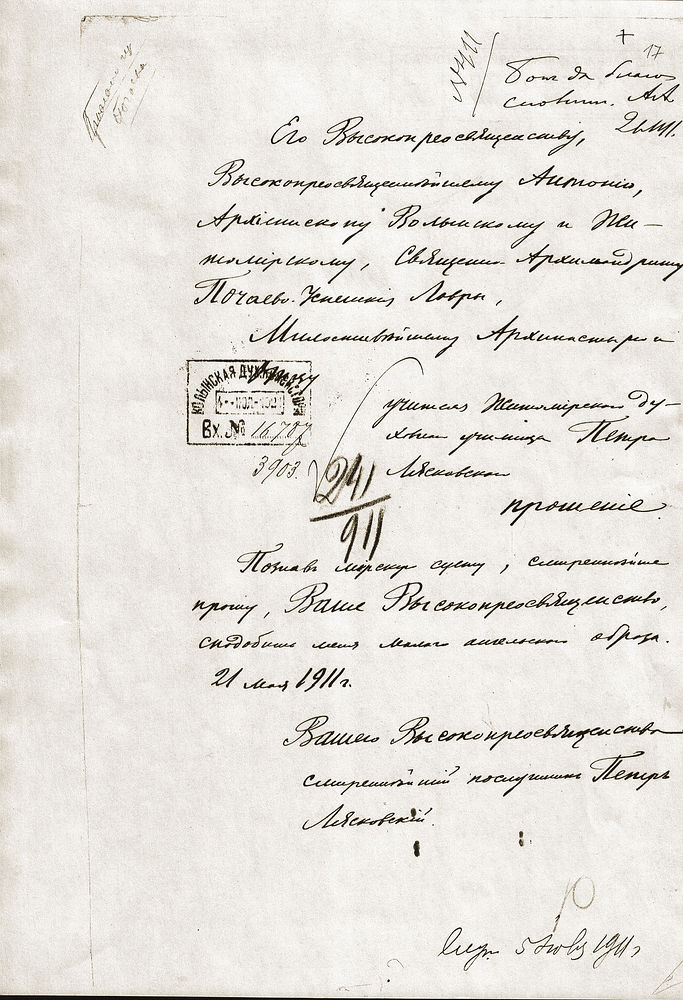 17
№ 411
Богъ да благо-
словитъ. АА
Его Высокопреосвященству,
Высокопреосвященнѣйшему Антонію,
Архіепископу Волынскому и Жи-
томірскому, Священно-Архимандриту
Почаево-Успенскія Лавры,
Милостивѣйшему Архипастырю и
ВОЛЫНСКАЯ ДУХ. КОНСИСТОРІЯ
Вх. № 16707
3903.
учителя Житомірскаго Ду-
ховнаго училища Петра
Лясковскаго
прошеніе.
241
911
Познавъ мірскую суету, смиреннѣйше
прошу, Ваше Высокопреосвященство,
сподобить меня малаго ангельскаго образа.
21 мая 1911 г.
Вашего Высокопреосвященства
смиреннѣйшій послушникъ Петръ
Лясковскій.
5 1911 г